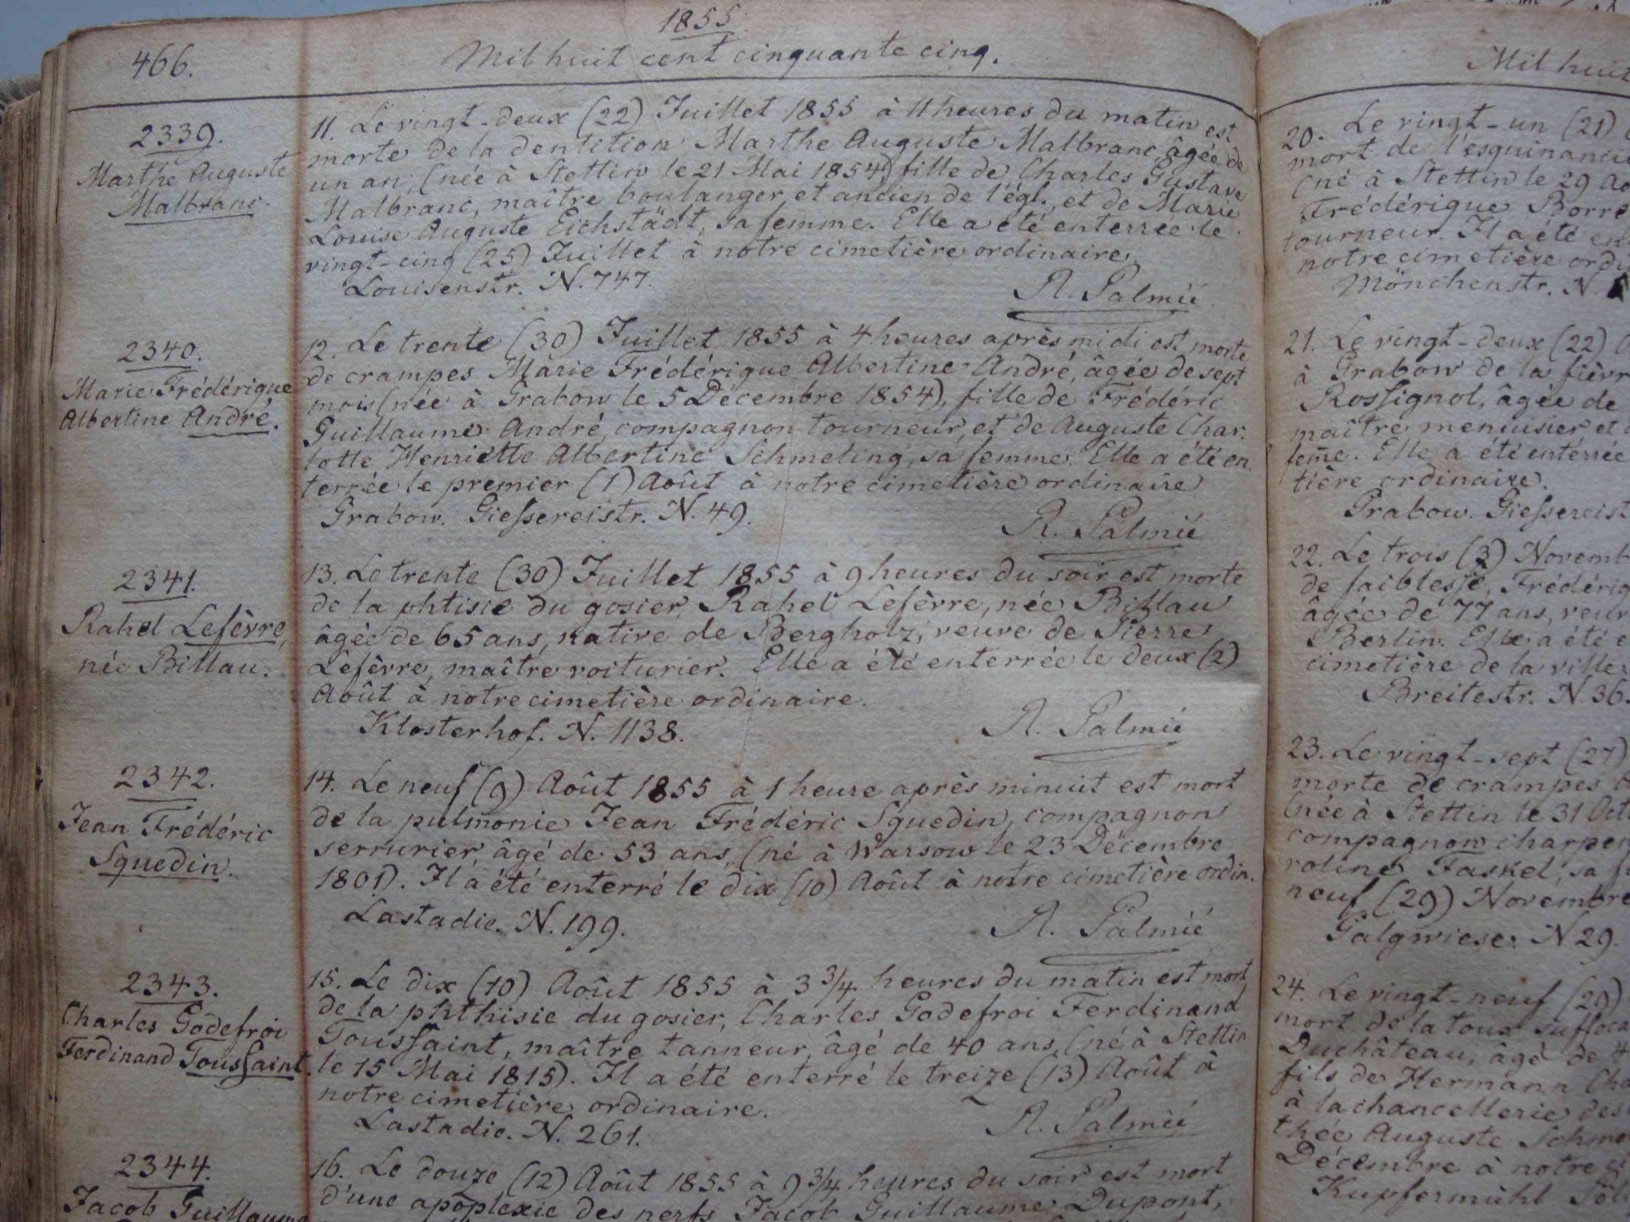 1855.
466.
Mil huit cent cinquante cinq.
2339.
Marthe Auguste
Malbranc.
11. Le vingt-deux (22) Juillet 1855 à 11 heures du matin est
morte de la dentition Marthe Auguste Malbranc, âgée de
un an, (née à Stettin le 21 Mai 1854) fille de Charles Gustave
Malbranc, maître boulanger, et ancien de l'égl., et de Marie
Louise Auguste Eichstädt, sa femme. Elle a été enterrée le
vingt-cinq (25) Juillet à notre cimetière ordinaire.
Louisenstr. N. 747.
A. Palmié
2340.
Marie Frédérique
Albertine André.
12. Le trente (30) Juillet 1855 à 4 heures après midi est morte
de crampes Marie Frédérique Albertine André, âgée de sept
mois (née à Grabow le 5 Décembre 1854), fille de Fréderic
Guillaume André, compagnon tourneur, et de Auguste Char-
lotte Henriette Albertine Schmeling, sa femme. Elle a été en
terrée le premier (1) Août à notre cimetière ordinaire
Grabow. Giessereistr. N. 49.
A. Palmié
2341.
Rahel Lefèvre,
née Billau.
13. Le trente (30) Juillet 1855 à 9 heures du soir est morte
de la phtisie du gosier, Rahel Lefèvre, née Billau
âgée de 65 ans, native de Bergholz, veuve de Pierre
Lefèvre, maître voiturier. Elle a été enterrée le deux (2)
Août à notre cimetière ordinaire.
Klosterhof. N. 1138.
A. Palmié
2342.
Jean Frédéric
Squedin.
14. Le neuf (9) Août 1855 à 1 heure après minuit est mort
de la pulmonie Jean Frédéric Squedin, compagnon
serrurier, âgé de 53 ans, (né à Warsow le 23 Décembre
1801). Il a été enterré le dix (10) Août à notre cimetière ordin.
Lastadie. N. 199.
A. Palmié
2343.
Charles Godefroi
Ferdinand Toussaint.
15. Le dix (10) Août 1855 à 3 3/4 heures du matin est mort
de la phthisie du gosier, Charles Godefroi Ferdinand
Toussaint, maître tanneur, âgé de 40 ans, (né à Stettin
le 15 Mai 1815). Il a été enterré le treize (13) Août à
notre cimetière ordinaire.
Lastadie. N. 261.
A. Palmié
2344.
Jacob Guillaume
16. Le douze (12) Août 1855 à 9 3/4 heures du soir est mort
d'une apoplexie des nerfs Jacob Guillaume Dupont,
Mil huit
20. Le vingt-un (21)
mort de l'esquinancie
(né à Stettin le 29
Frédérique Borre
tourneur. Il a été en
notre cimetière ordi
Mönchenstr. N.
21. Le vingt-deux (22)
à Grabow de la fièvr
Rossignol, âgée de
maître menuisier et
feme. Elle a été entérrée
tière ordinaire.
Grabow. Giessereist
22. Le trois (3) Novemb
de faiblesse, Frédériq
âgée de 77 ans, veuv
Berlin. Elle a été e
cimetière de la ville
Breitestr. N. 36.
23. Le vingt-sept (27)
morte de crampes
(née à Stettin le 31 Oct
compagnon charpen
roline Faskel, sa f
neuf (29) Novembre
Galgwiese. N 29.
24. Le vingt-neuf (29)
mort de la toux suffoca
Duchâteau, âgé de 4
fils de Hermann Cha
à la chancellerie des
thée Auguste Schm
Décembre à notre
Kupfermühl